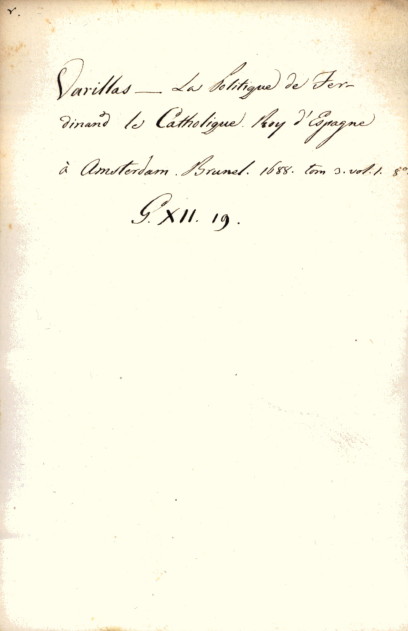 v.
Varillas — La Politique de Fer-
dinand le Catholique. Roy d'Espagne
à Amsterdam. Brunel. 1688. tom 3. vol. 1. 8º
G. XII. 19.